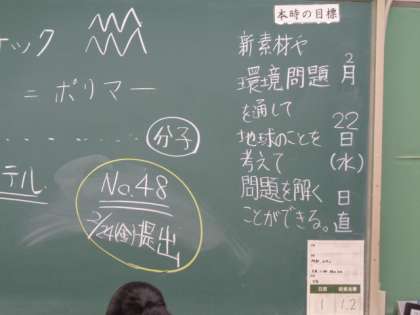 本時の目標
新素材や
環境問題
を通して
地球のことを
考えて
問題を解く
ことができる。
2
月
22
日
(水)
日
直
ック
= ポリマー
分子
テル
No.48
2/24(金)提出
1 1.2